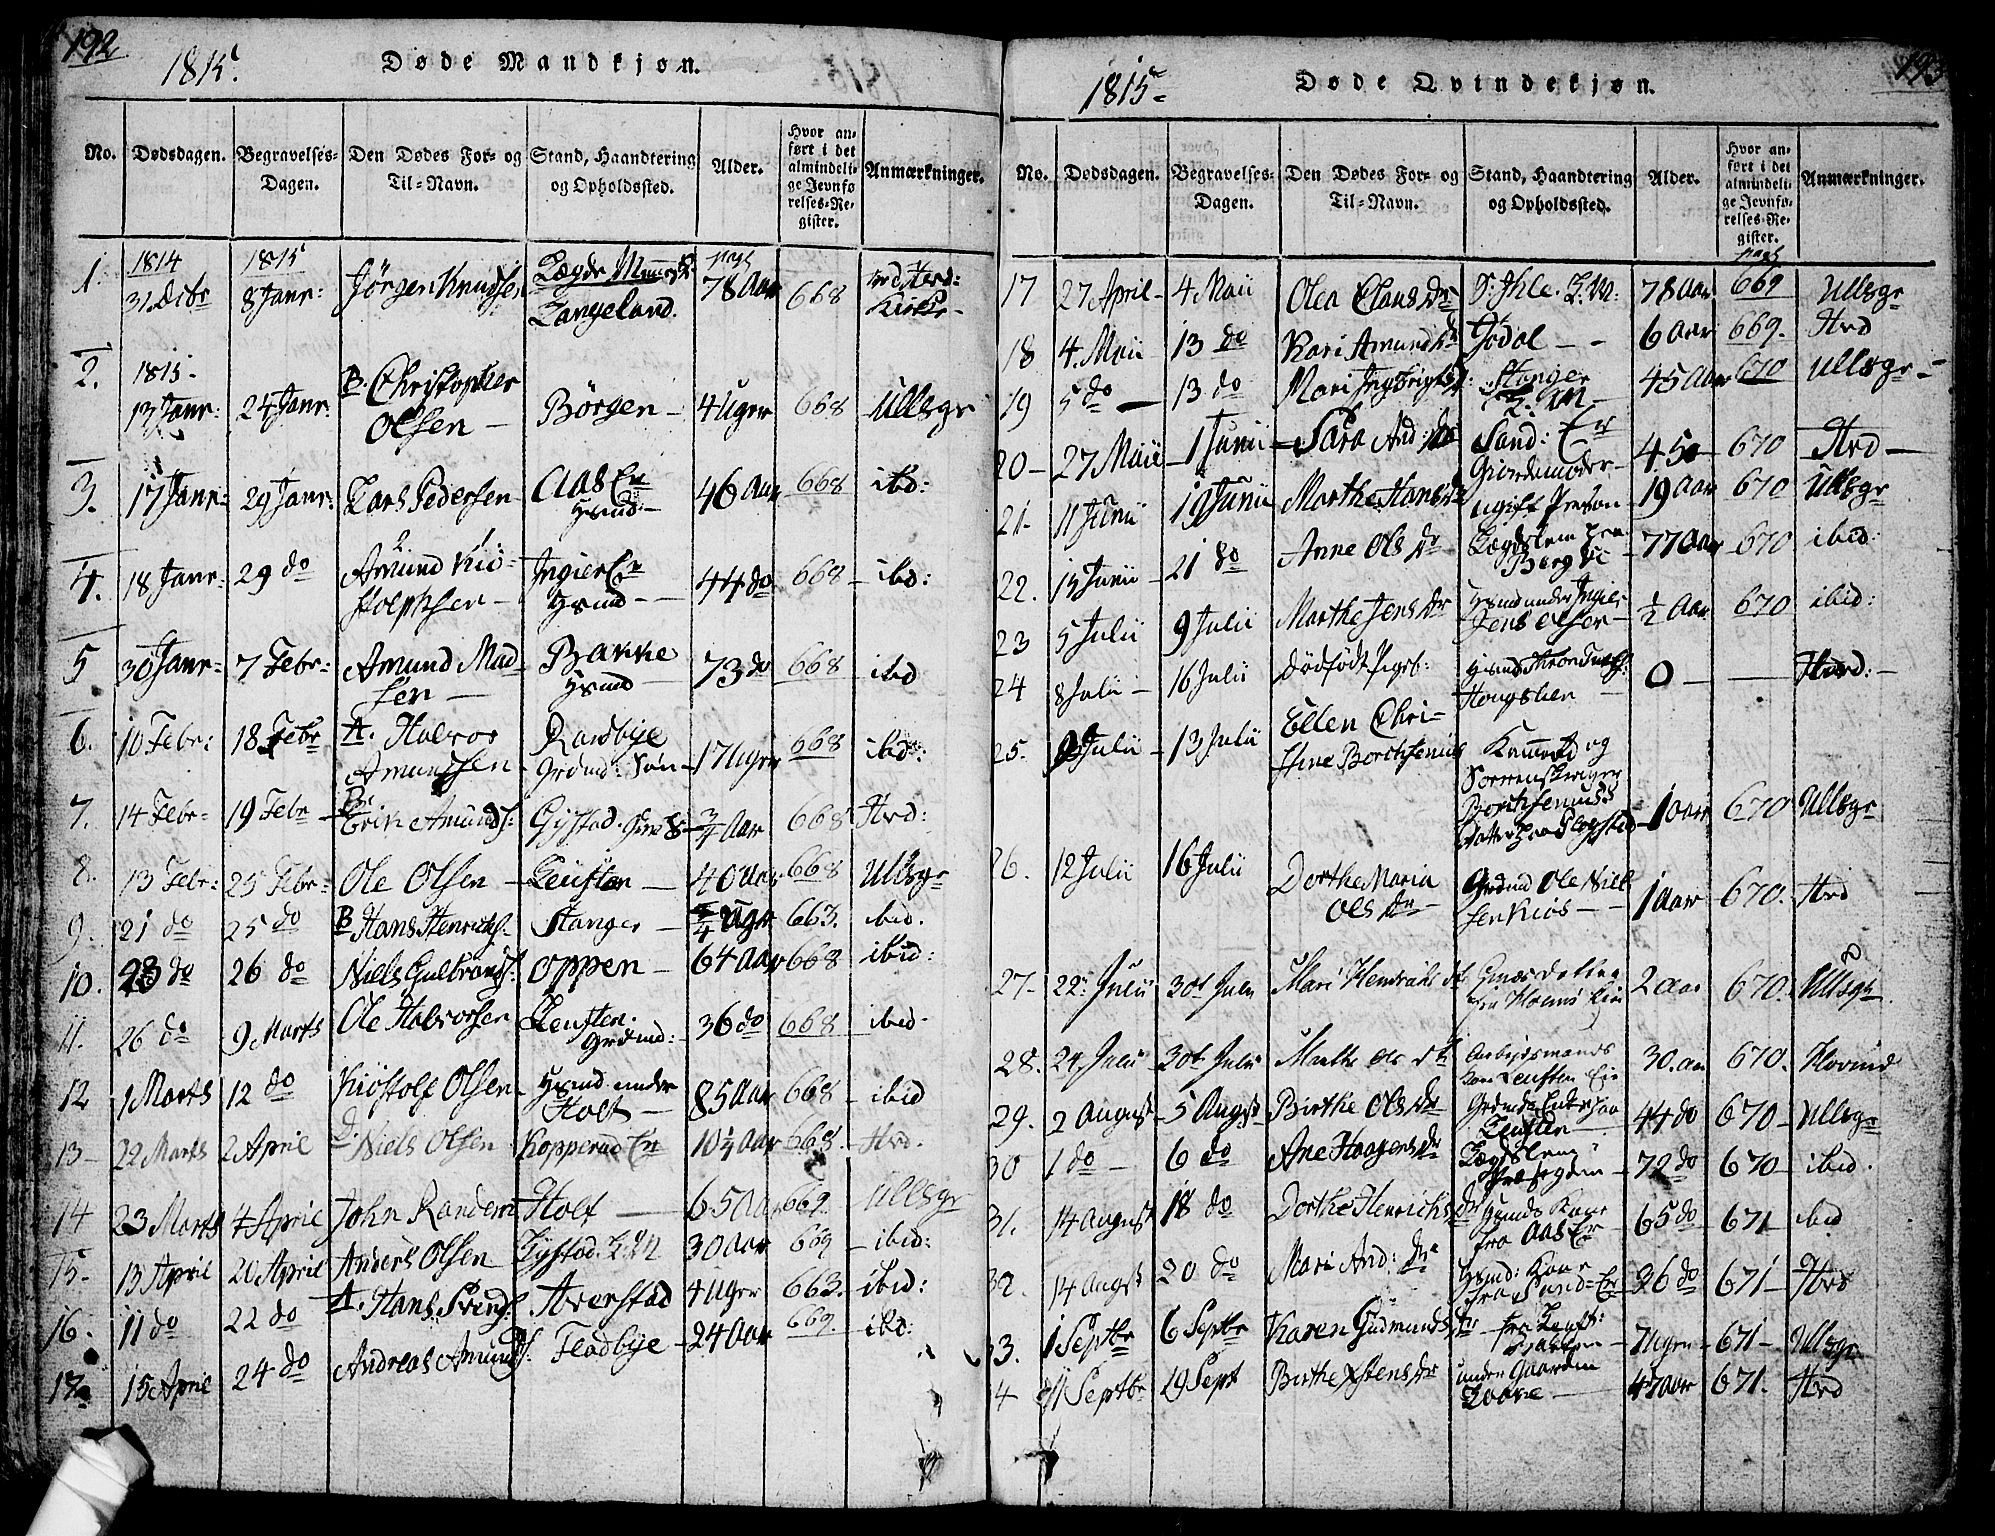 192
1815.
Døde Mandkjøn.
No. Dødsdagen. Begravelses-Dagen. Den Dødes For- og Til-Navn. Stand, Haandtering og Opholdssted. Alder. Hvor anført i det almindelige Jevnførelses-Register. Anmærkninger.
1. 1814 31. Dcbr 1815 8 Janr: Jörgen Knudsen Langeland. 78 Aar 668 Kirke
2. 1815. 13 Janr: 24 Janr: B. Christopher Olsen Börgen 4 Uger 668 Ullsgr
3. 17 Janr 29 Janr: Lars Pedersen Aas Er Hsmd 46 Aar 668 ibd:
4. 18 Janr: 29 do Amund Kiöstolphsen Ingier Er Hsmd 44 do 668 ibd:
5 30 Janr 7 Febr: Amund Madsen Bakke Hsmd 73 do 668 ibd
6. 10 Febr: 18 Febr A. Halvor Amundsen Randbye Grdmd: Sön 17 Uger 668 ibd:
7. 14 Febr 19 Febr B: Erik Amunds: Gystad 3/4 Aar 668 Hrd:
8. 13 Febr: 25 Febr Ole Olsen Leufsten 40 Aar 668 Ullsgr
9. 21 do 25 do B Hans Henrichs: Stanger 3/4 Uger 663. ibid.
10. 23 do 26 do Niels Gulbrands: Oppen 64 Aar 668 ibid:
11. 26 do 9 Marts Ole Halvorsen Leufsten. Grdmd: 36 do 668 ibid
12 1 Marts 12 do Kiöstolf Olsen Hsmd under Holt 85 Aar 668 ibid
13 22 Marts 2 April Niels Olsen Kopperud Er 10½ Aar 668. Hrd.
14 23 Marts 4 April John Randem Holt 65 Aar 669. Ullsgr
15. 13 April 20 April Anders Olsen Gystad L: M 30 Aar 669 ibid:
16. 11 do 22 do A. Hans Svends: Averstad 4 Uger 663. ibid:
17. 15 April 24 do Andreas Amunds: Fladbye 24 Aar 669. ibd:
193
1815
Døde Qvindekjøn.
No. Dødsdagen. Begravelses-Dagen. Den Dødes For- og Til-Navn. Stand, Haandtering og Opholdssted. Alder. Hvor anført i det almindelige Jevnførelses-Register. Anmærkninger.
17 27 April 4 Maii Olea Claus Dr Ihle. L: M: 78 Aar 669 Ullsgr
18 4. Maii 13 do Kari Amund Dr Jödal 6 Aar 669. Hrd
19 5 do 13 do Mari Ingbrigts D: Stanger L: M 45 Aar 670 Ullsgr
20 27 Maii 1 Junii Sara And: Dr Sand: Er Giordemoder 45 670 Hrd
21. 11 Junii 19 Junii Marthe Hans Dr ugift Person 19 Aar 670 Ullsgr
22. 15 Junii 21 do Anne Ols Dr Lægdslem fra Bergvi 77 Aar 670 ibid:
23 5 Julii 9 Julii Marthe Jens Dr Hsmd under Ingier Jens Olsen ½ Aar 670 ibid:
24 8 Julii 16 Julii Dödfödt Pigeb: Hsmd Haugslien 0 Hvrd:
25. Julii 13 Julii Ellen Christine Borchsenius Kammerd og Sorrenskriver Borchsenius's Datter fra Slogstad 1 Aar 670 Ullsgr
26. 12 Julii 16 Julii Dorthe Maria Ols Dr Grdmd Ole Nielsen Kiös 1 Aar 670. Hrd
27 22 Julii 30t Julii Mari Hendriks dt 2 Aar 670. Ullsgr
28. 24. Julii 30t Julii Marthe Ols dt Arbeidsmands Kone Leufsten Eie 30. aar 670. Hovind
29. 2 August 5 Augst Birthe Ols Dr Grdmds Enke fra Leufsten 44 do 670 Ullsgr
30 1 do 6 do Ane Haagens Dr Lægdslem Præstegrden 72 do 670 ibid.
31. 14 August 18 do Dorthe Henrichs Dr Hsmds Kone fra Aas Er 65 do 671 ibid
32. 14 Augst 20 do Mari And: Dr Hsmd: Kone fra Sand Er 36 do 671 Hrd
33. 1 Septbr 6 Septbr Karen Gudmunds Dr fra Leufst: 7 Ugr 671 Ullsgr
4 11 Septbr 19 Sept Birthe Xstens Dr under Gaarden Laake 47 Aar 671. Hrd